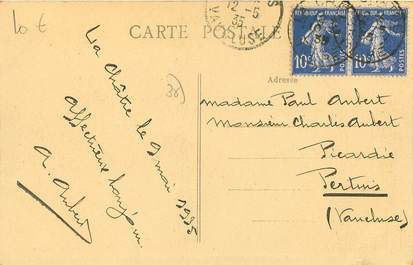 10 €
CARTE POSTALE
12-5
35
VAUCLUSE
REPUBLIQUE FRANÇAISE
10c
POSTES
REPUBLIQUE FRANÇAISE
10c
POSTES
Adresse
38
La châtre le 9 mai 1935
affectueux bonjour
A. Aubert
Madame Paul Aubert
Monsieur Charles Aubert
Picardie
Pertuis
(Vaucluse)